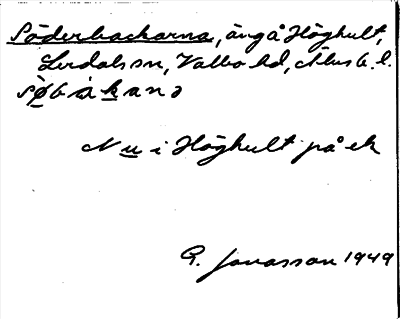 Söderbackarna, äng å Höghult,
Lerdals sn, Valbo hd, Älvsb. l.
sø̀bákanə
Nu i Höghult på ek
G. Jonasson 1949